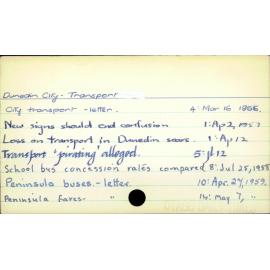 Dunedin City - Transport
City transport - letter. 4: Mar 16 1956.
New signs should end confusion 1: Ap 2, 1957
Loss on transport in Dunedin soars. 1: Ap 12
Transport 'pirating' alleged. 5: Jl 12
School bus concession rates compared 8: Jul 25, 1958
Peninsula buses. - letter. 10: Apr. 27, 1959.
Peninsula fares - " 14: May 7, "